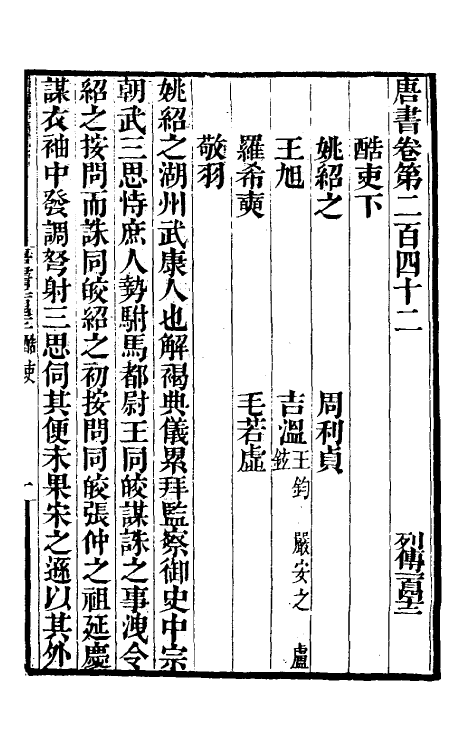 唐書卷第二百四十二 列傳一百四十二
酷吏下
姚紹之 周利貞
王旭 吉溫 王鈞 嚴安之 盧鉉
羅希奭 毛若虛
敬羽
姚紹之湖州武康人也解褐典儀累拜監察御史中宗
朝武三思恃庶人勢駙馬都尉王同皎謀誅之事洩令
紹之按問而誅同皎紹之初按問同皎張仲之祖延慶
謀衣袖中發調弩射三思伺其便未果宋之遜以其外
酷吏 一